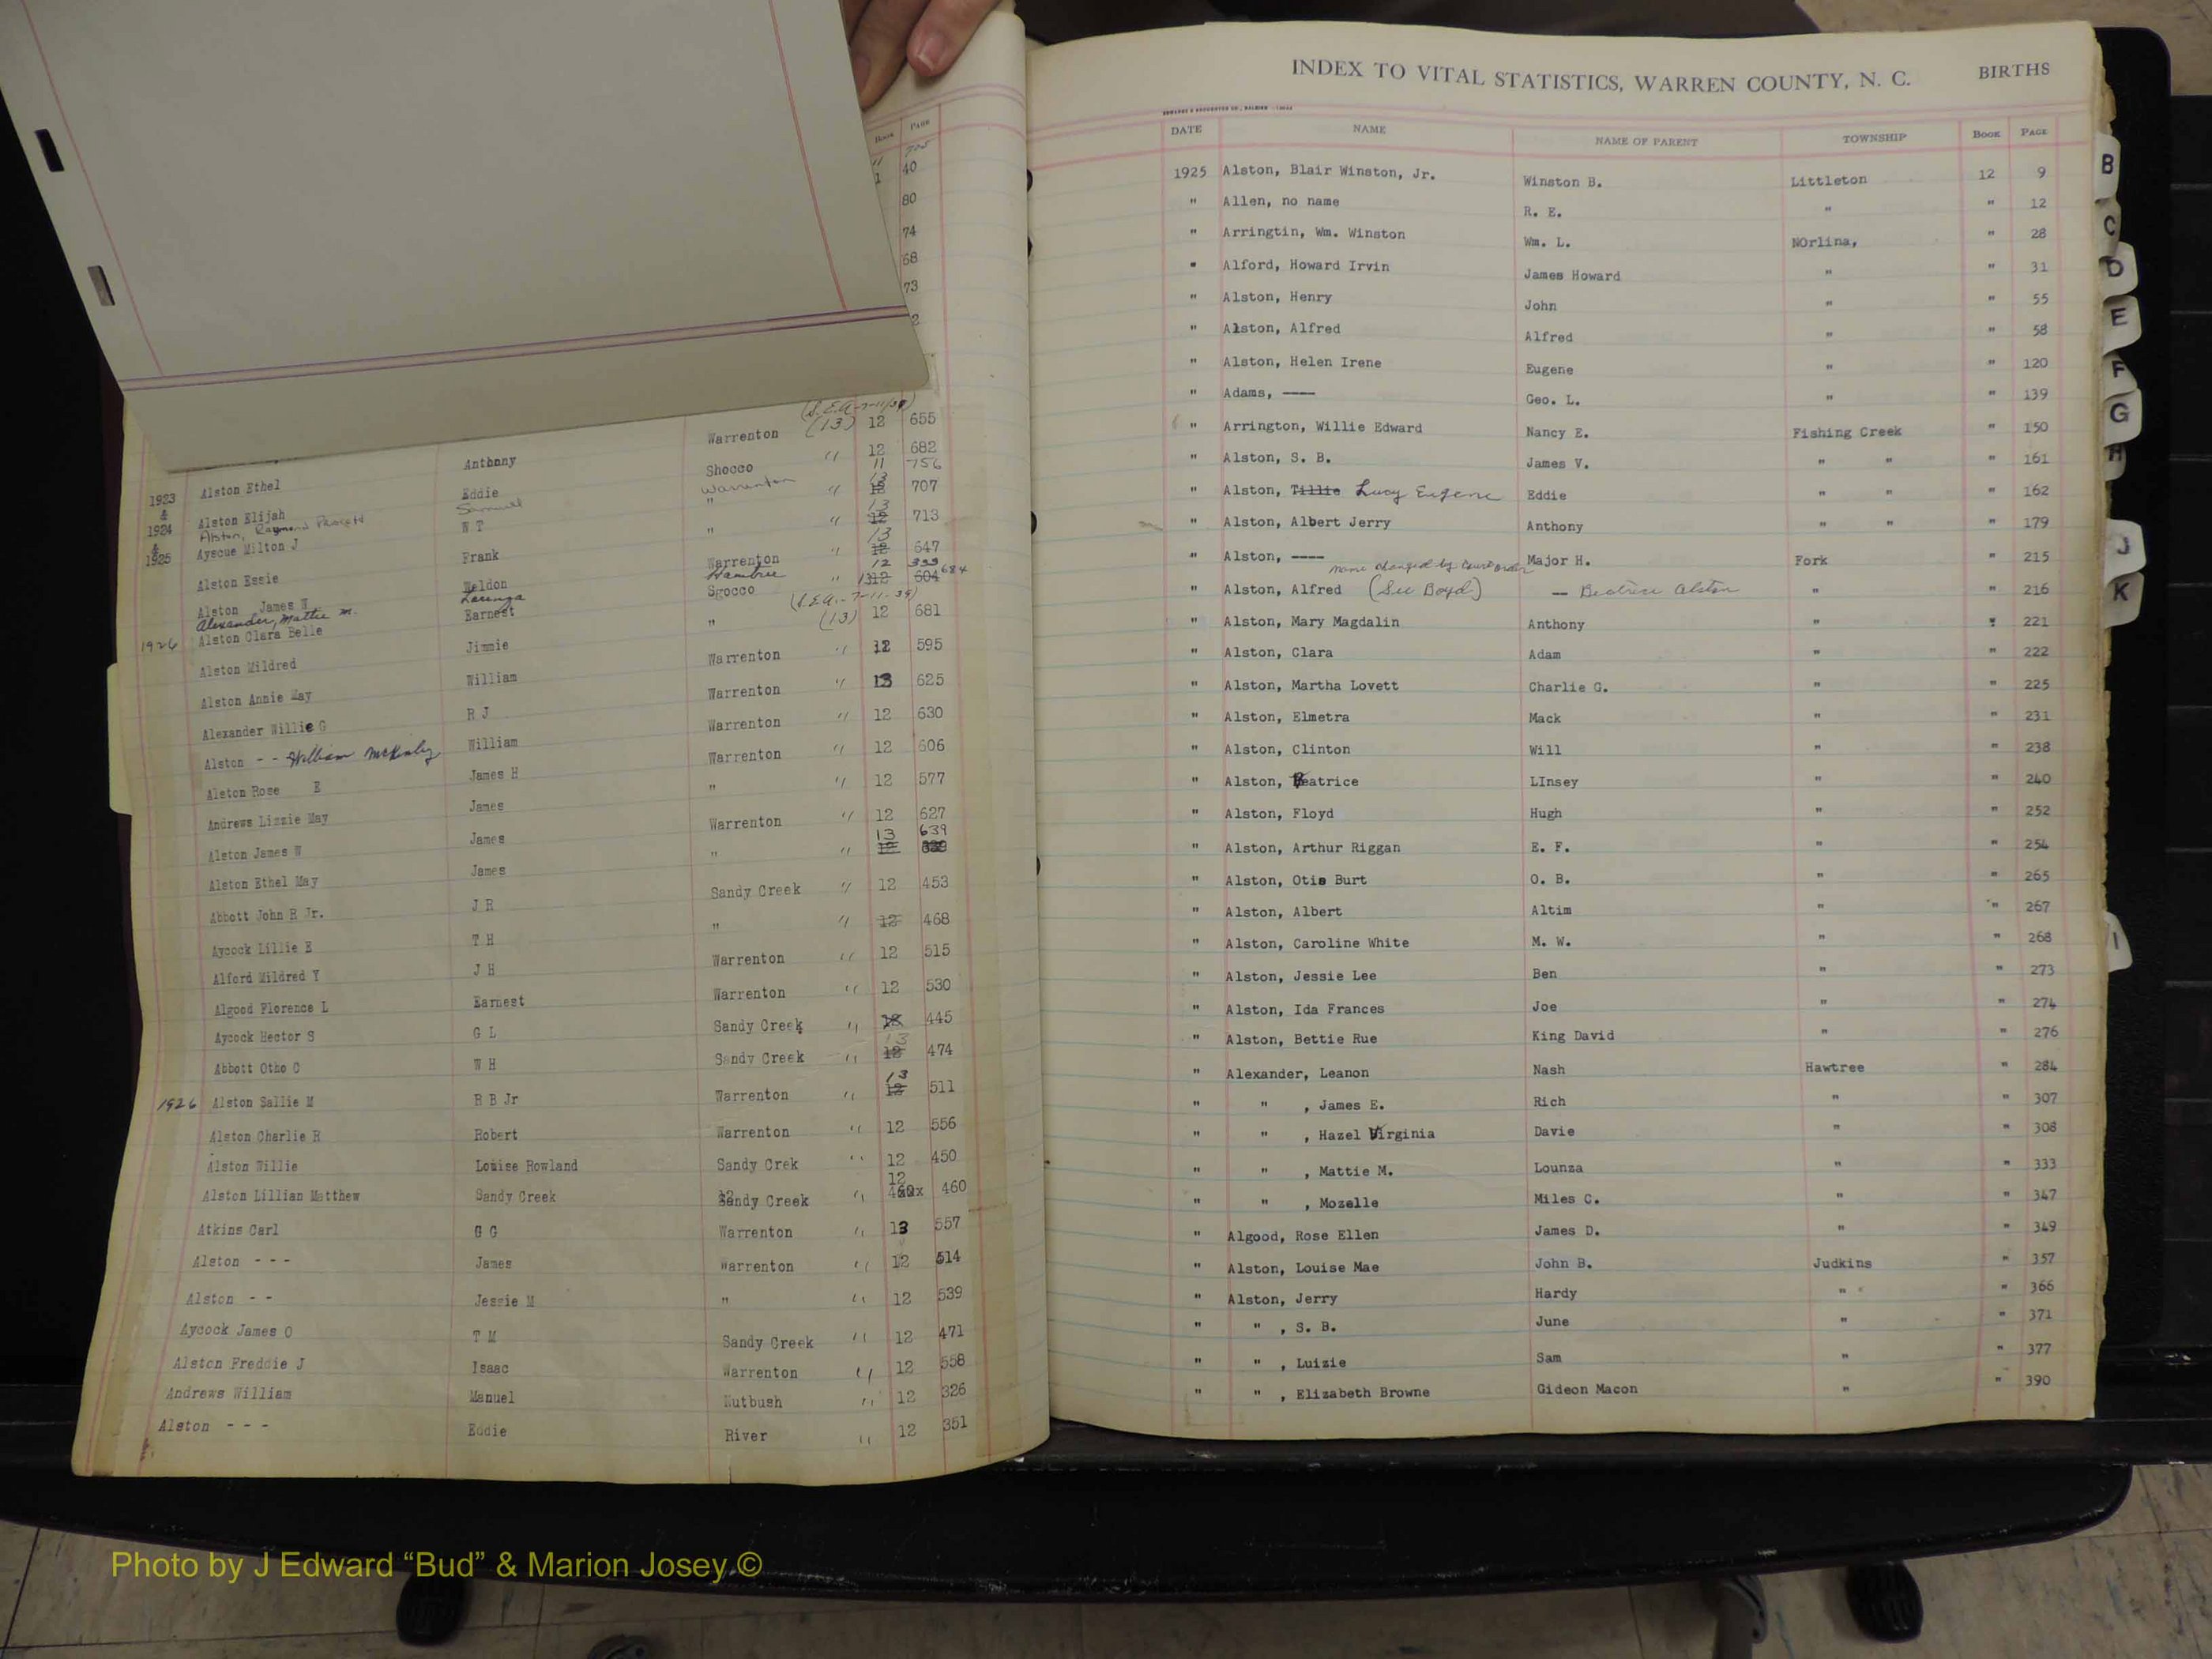 Book PAGE
40
1
80
74
68
73
2
(S.E.A-7-11/39)
Warrenton (13) 12 655
Anthony Shocco " 12 682
11 756
1923 Alston Ethel Eddie Warrenton " 13 12 707
& Alston Elijah Samuel "
1924 Alston, Raymond W T " " 13 12 713
& 1925 Ayscue Milton J Frank Warrenton " 13 12 647
Alston Essie Weldon Hamtree " 12 333
Alston James W Lorenza Sgocco 1312 604 684
Alexander, Mattie M. Earnest (S.E.A.-7-11-39)
1926 Alston Clara Belle " (13) 12 681
Alston Mildred Jimmie Warrenton " 12 595
Alston Annie May William Warrenton " 13 625
Alexander Willie G R J Warrenton " 12 630
Alston - - William McKinley William Warrenton " 12 606
Alston Rose E James H " " 12 577
Andrews Lizzie May James Warrenton " 12 627
Alston James W James " " 13 12 639
Alston Ethel May James Sandy Creek " 12 453
Abbott John R Jr. J R " " 12 468
Aycock Lillie E T H Warrenton " 12 515
Alford Mildred Y J H Warrenton " 12 530
Algood Florence L Earnest Sandy Creek " 445
Aycock Hector S G L Sandy Creek " 13 12 474
Abbott Otho C W H Warrenton " 13 12 511
1926 Alston Sallie M R B Jr Warrenton " 12 556
Alston Charlie R Robert Sandy Crek " 12 450
Alston Willie Louise Rowland Sandy Creek " 12 460
Alston Lillian Matthew Sandy Creek Warrenton " 13 557
Atkins Carl G G Warrenton " 12 514
Alston - - - James " " 12 539
Alston - - Jessie M Sandy Creek " 12 471
Aycock James O T M Warrenton " 12 558
Alston Freddie J Isaac Nutbush " 12 326
Andrews William Manuel River " 12 351
Alston - - - Eddie
INDEX TO VITAL STATISTICS, WARREN COUNTY, N. C. BIRTHS
DATE NAME NAME OF PARENT TOWNSHIP BOOK PAGE
1925 Alston, Blair Winston, Jr. Winston B. Littleton 12 9
" Allen, no name R. E. " " 12
" Arringtin, Wm. Winston Wm. L. NOrlina, " 28
" Alford, Howard Irvin James Howard " " 31
" Alston, Henry John " " 55
" Alston, Alfred Alfred " " 58
" Alston, Helen Irene Eugene " " 120
" Adams, ---- Geo. L. " " 139
" Arrington, Willie Edward Nancy E. Fishing Creek " 150
" Alston, S. B. James V. " " " 161
" Alston, Tillie Lucy Eugene Eddie " " " 162
" Alston, Albert Jerry Anthony " " " 179
" Alston, ---- Major H. Fork " 215
name changed by Court order
" Alston, Alfred (See Boyd) -- Beatrice Alston " " 216
" Alston, Mary Magdalin Anthony " " 221
" Alston, Clara Adam " " 222
" Alston, Martha Lovett Charlie G. " " 225
" Alston, Elmetra Mack " " 231
" Alston, Clinton Will " " 238
" Alston, Beatrice LInsey " " 240
" Alston, Floyd Hugh " " 252
" Alston, Arthur Riggan E. F. " " 254
" Alston, Otis Burt O. B. " " 265
" Alston, Albert Altim " " 267
" Alston, Caroline White M. W. " " 268
" Alston, Jessie Lee Ben " " 273
" Alston, Ida Frances Joe " " 274
" Alston, Bettie Rue King David " " 276
" Alexander, Leanon Nash Hawtree " 284
" " , James E. Rich " " 307
" " , Hazel Virginia Davie " " 308
" " , Mattie M. Lounza " " 333
" " , Mozelle Miles C. " " 347
" Algood, Rose Ellen James D. " " 349
" Alston, Louise Mae John B. Judkins " 357
" Alston, Jerry Hardy " " 366
" " , S. B. June " 371
" " , Luizie Sam " " 377
" " , Elizabeth Browne Gideon Macon " " 390
B
C
D
E
F
G
H
J
K
I
Photo by J Edward “Bud” & Marion Josey ©